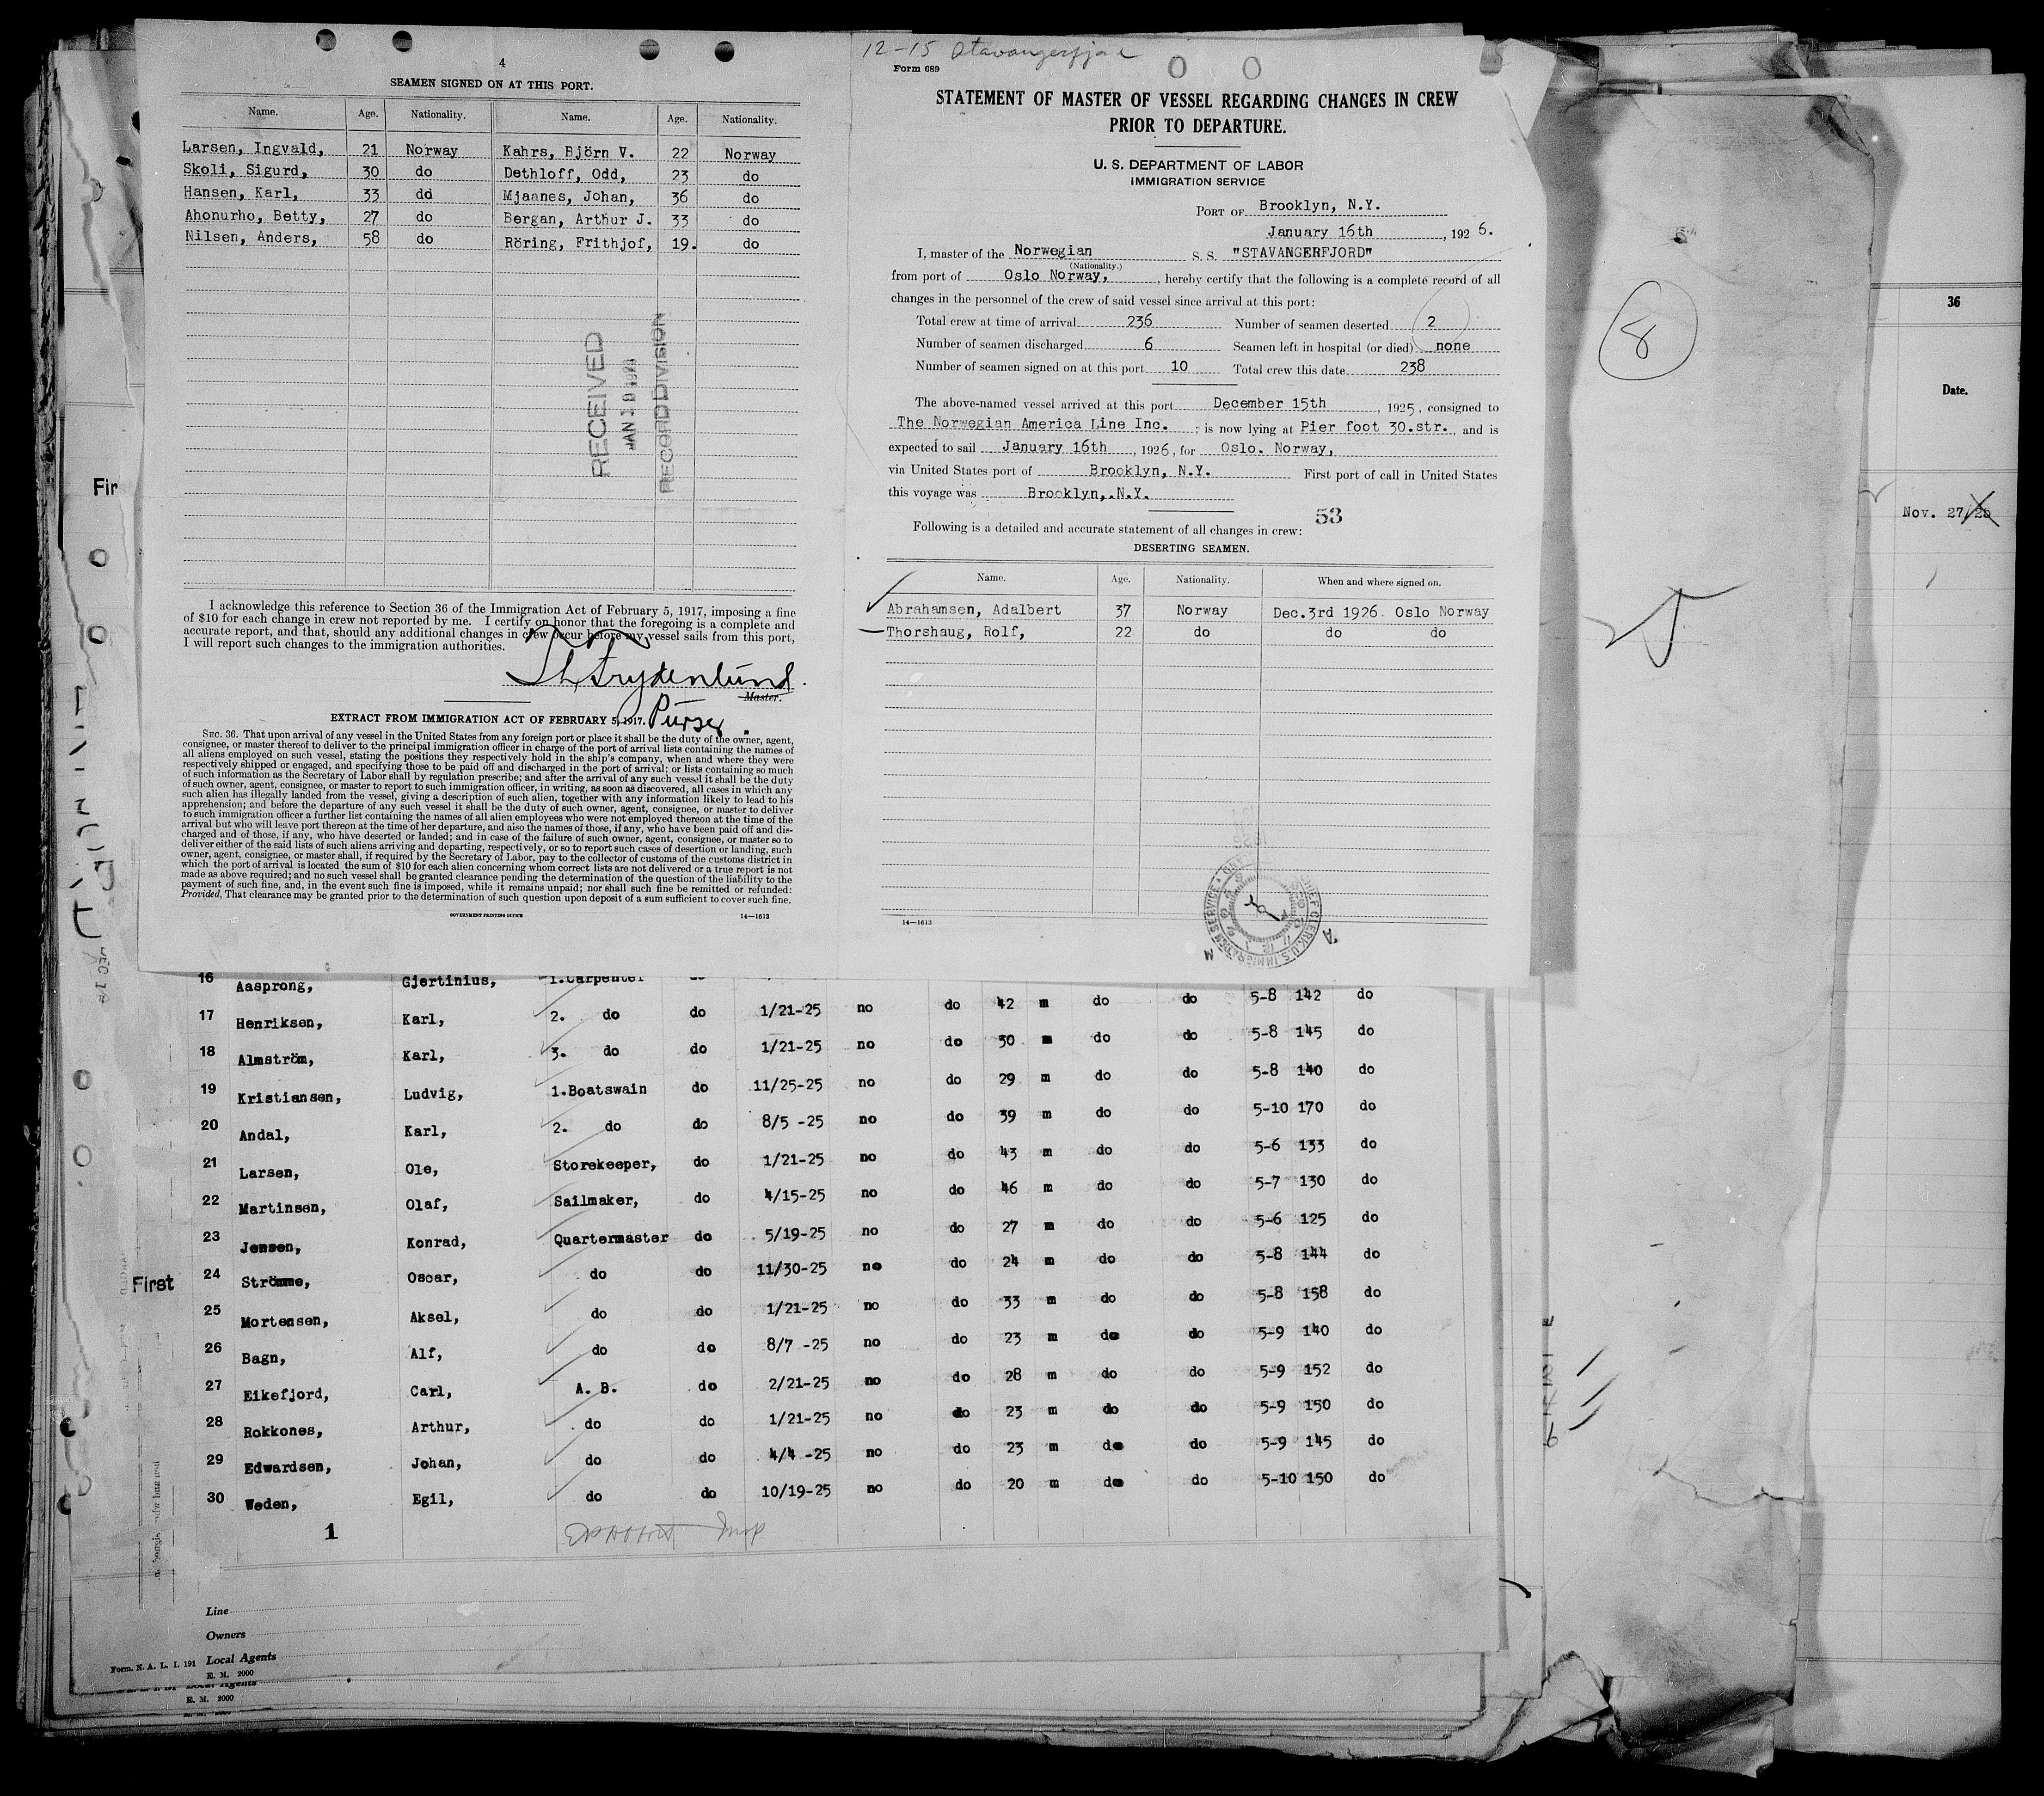 4
SEAMEN SIGNED ON AT THIS PORT.
Name. Age. Nationality. Name. Age. Nationality.
Larsen, Ingvald, 21 Norway Kahrs, Björn V. 22 Norway
Skoli, Sigurd, 30 do Dethloff, Odd, 23 do
Hansen, Karl, 33 do Mjaanes, Johan, 36 do
Ahonurho, Betty, 27 do Bergan, Arthur J. 33 do
Nilsen, Anders, 58 do Röring, Frithjof, 19. do
RECEIVED
RECORD DIVISION
I acknowledge this reference to Section 36 of the Immigration Act of February 5, 1917, imposing a fine
of $10 for each change in crew not reported by me. I certify on honor that the foregoing is a complete and
accurate report, and that, should any additional changes in crew occur before my vessel sails from this port,
I will report such changes to the immigration authorities.
Master.
Purser
EXTRACT FROM IMMIGRATION ACT OF FEBRUARY 5, 1917.
SEC. 36. That upon arrival of any vessel in the United States from any foreign port or place it shall be the duty of the owner, agent,
consignee, or master thereof to deliver to the principal immigration officer in charge of the port of arrival lists containing the names of
all aliens employed on such vessel, stating the positions they respectively hold in the ship's company, when and where they were
respectively shipped or engaged, and specifying those to be paid off and discharged in the port of arrival; or lists containing so much
of such information as the Secretary of Labor shall by regulation prescribe; and after the arrival of any such vessel it shall be the duty
of such owner, agent, consignee, or master to report to such immigration officer, in writing, as soon as discovered, all cases in which any
such alien has illegally landed from the vessel, giving a description of such alien, together with any information likely to lead to his
apprehension; and before the departure of any such vessel it shall be the duty of such owner, agent, consignee, or master to deliver
to such immigration officer a further list containing the names of all alien employees who were not employed thereon at the time of the
arrival but who will leave port thereon at the time of her departure, and also the names of those, if any, who have been paid off and dis-
charged and of those, if any, who have deserted or landed; and in case of the failure of such owner, agent, consignee, or master so to
deliver either of the said lists of such aliens arriving and departing, respectively, or so to report such cases of desertion or landing, such
owner, agent, consignee, or master shall, if required by the Secretary of Labor, pay to the collector of customs of the customs district in
which the port of arrival is located the sum of $10 for each alien concerning whom correct lists are not delivered or a true report is not
made as above required; and no such vessel shall be granted clearance pending the determination of the question of the liability to the
payment of such fine, and, in the event such fine is imposed, while it remains unpaid; nor shall such fine be remitted or refunded:
Provided, That clearance may be granted prior to the determination of such question upon deposit of a sum sufficient to cover such fine.
GOVERNMENT PRINTING OFFICE 14—1613
12-15 Stavangerfjord
Form 689
STATEMENT OF MASTER OF VESSEL REGARDING CHANGES IN CREW
PRIOR TO DEPARTURE.
U. S. DEPARTMENT OF LABOR
IMMIGRATION SERVICE
PORT OF Brooklyn, N.Y.
January 16th, 1926.
I, master of the Norwegian S. S. "STAVANGERFJORD"
(Nationality.)
from port of Oslo Norway, , hereby certify that the following is a complete record of all
changes in the personnel of the crew of said vessel since arrival at this port:
Total crew at time of arrival 236 Number of seamen deserted 2
Number of seamen discharged 6 Seamen left in hospital (or died) none
Number of seamen signed on at this port 10 Total crew this date 238
The above-named vessel arrived at this port December 15th, 1925, consigned to
The Norwegian America Line Inc. ; is now lying at Pier foot 30.str., and is
expected to sail January 16th, 1926, for Oslo. Norway,
via United States port of Brooklyn, N.Y. First port of call in United States
this voyage was Brooklyn,.N.Y.
53
Following is a detailed and accurate statement of all changes in crew:
DESERTING SEAMEN.
Name. Age. Nationality. When and where signed on.
Abrahamsen, Adalbert 37 Norway Dec.3rd 1926. Oslo Norway
Thorshaug, Rolf, 22 do do do
14—1613
8
36
Date.
Nov. 27/25
Fir
First
16 Aasprong, Gjertinius, 1.Carpenter
17 Henriksen, Karl, 2. do do 1/21-25 no do 42 m do do 5-8 142 do
18 Almström, Karl, 3. do do 1/21-25 no do 30 m do do 5-8 145 do
19 Kristiansen, Ludvig, 1.Boatswain do 11/25-25 no do 29 m do do 5-8 140 do
20 Andal, Karl, 2. do do 8/5 -25 no do 39 m do do 5-10 170 do
21 Larsen, Ole, Storekeeper, do 1/21-25 no do 43 m do do 5-6 133 do
22 Martinsen, Olaf, Sailmaker, do 4/15-25 no do 46 m do do 5-7 130 do
23 Jensen, Konrad, Quartermaster do 5/19-25 no do 27 m do do 5-6 125 do
24 Strömme, Oscar, do do 11/30-25 no do 24 m do do 5-8 144 do
25 Mortensen, Aksel, do do 1/21-25 no do 33 m do do 5-8 158 do
26 Bagn, Alf, do do 8/7 -25 no do 23 m do do 5-9 140 do
27 Eikefjord, Carl, A. B. do 2/21-25 no do 28 m do do 5-9 152 do
28 Rokkones, Arthur, do do 1/21-25 no do 23 m do do 5-9 150 do
29 Edwardsen, Johan, do do 4/4 -25 no do 23 m do do 5-9 145 do
30 Weden, Egil, do do 10/19-25 no do 20 m do do 5-10 150 do
1
Line
Owners
Form. N. A. L. I. 191 Local Agents
E. M. 2000
E. M. 2000